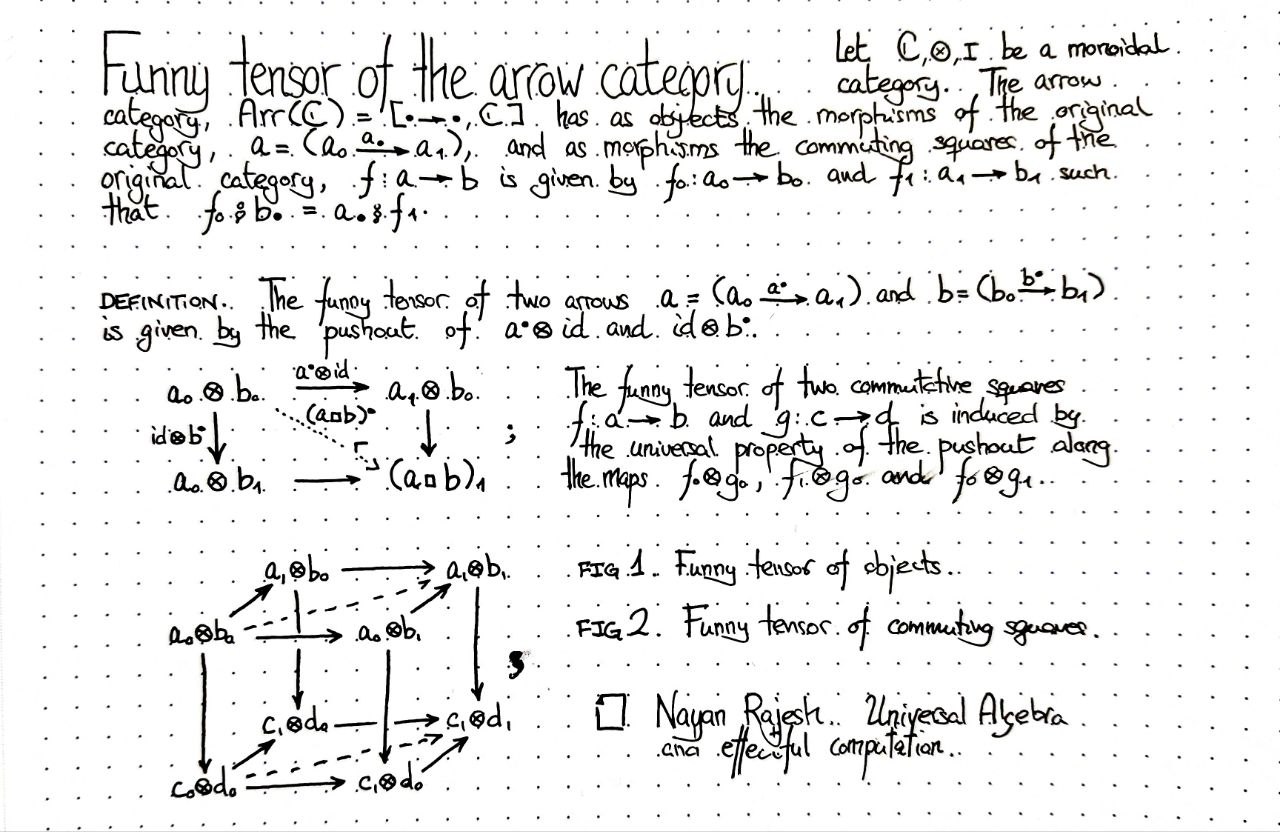 Funny tensor of the arrow category. Let ℂ,⊗,I be a monoidal
category. The arrow
category, Arr(ℂ) = [•→•, ℂ] has as objects the morphisms of the original
category, a = (a₀ —a•→ a₁), and as morphisms the commuting squares of the
original category, f : a → b is given by f₀ : a₀ → b₀ and f₁ : a₁ → b₁ such
that f₀ ⨾ b• = a• ⨾ f₁.
DEFINITION. The funny tensor of two arrows a = (a₀ —a•→ a₁) and b = (b₀ —b•→ b₁)
is given by the pushout of a•⊗id and id⊗b•.
a₀ ⊗ b₀ —a•⊗id→ a₁ ⊗ b₀
id⊗b• (a□b)• ;
a₀ ⊗ b₁ → (a□b)₁
The funny tensor of two commutative squares
f : a → b and g : c → d is induced by
the universal property of the pushout along
the maps f₀⊗g₀, f₁⊗g₀ and f₀⊗g₁.
a₁⊗b₀ → a₁⊗b₁
a₀⊗b₀ → a₀⊗b₁
;
c₁⊗d₀ → c₁⊗d₁
c₀⊗d₀ → c₁⊗d₀
FIG 1. Funny tensor of objects.
FIG 2. Funny tensor of commuting squares.
□ Nayan Rajesh. Universal Algebra
and effectful computation.